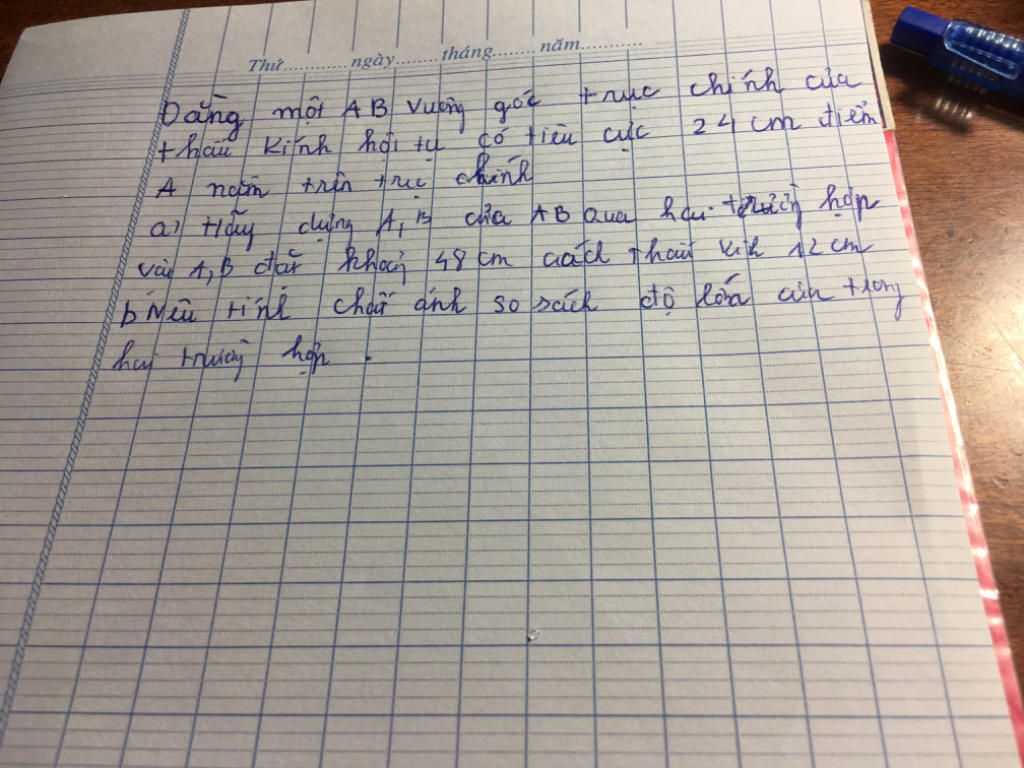 Thứ............ ngày........... tháng........ năm............
Dằng một AB vuông góc trục chính của
thấu kính hội tụ có tiêu cực 24 cm điểm
A nằm trên trục chính
a) Hãy dựng A, B của AB qua hai trường hợp
và A, B đặt khoảng 48 cm cách thấu kính 12 cm
b Nêu tính chất ảnh so sách độ lớn của trong
hai trường hợp .